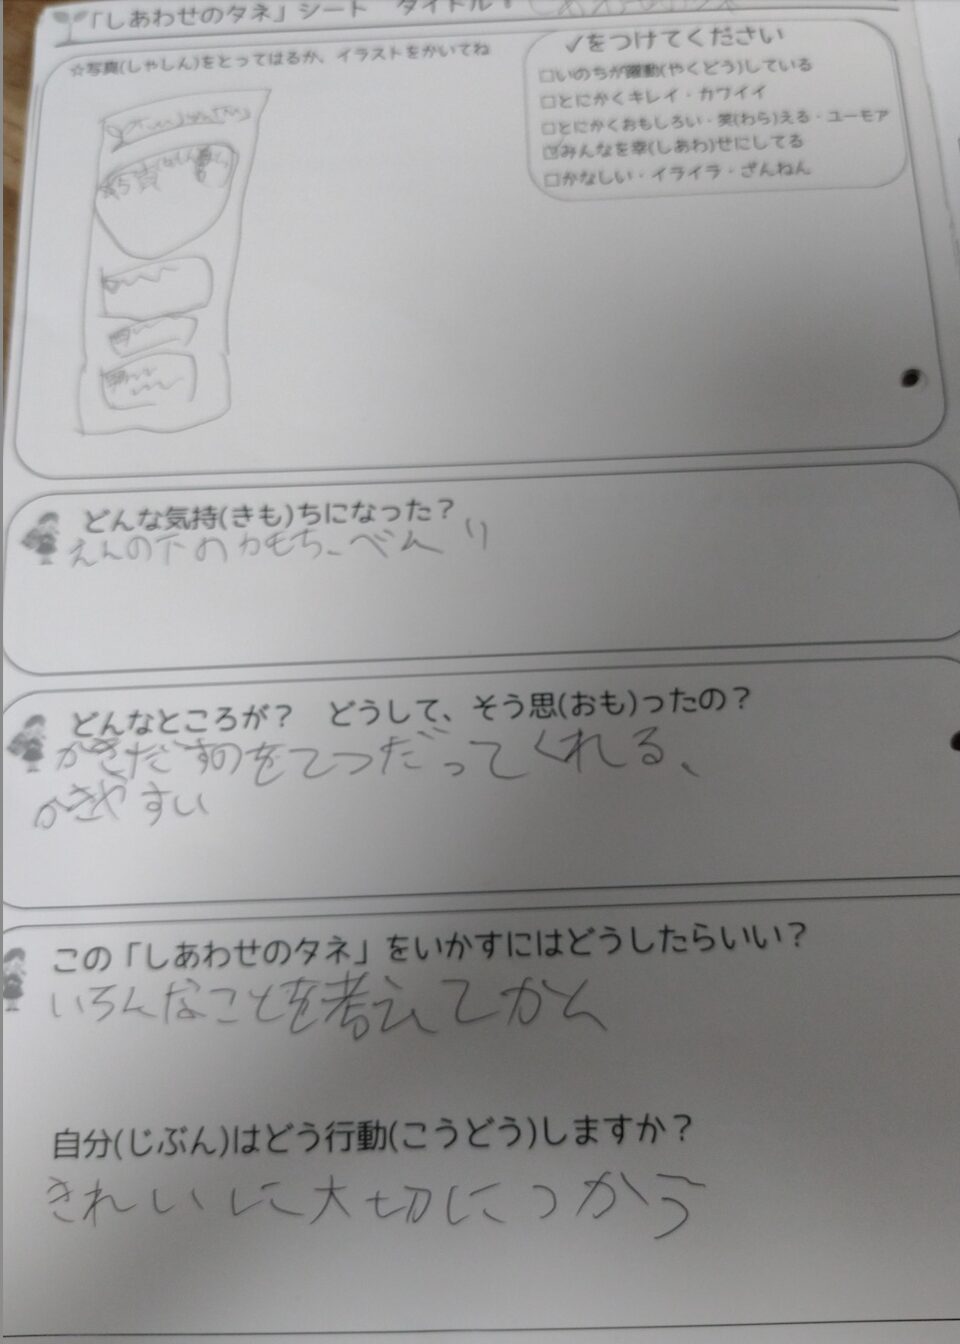 「しあわせのタネ」シート　タイトル：
☆写真(しゃしん)をとってはるか、イラストをかいてね
✓をつけてください
□いのちが躍動(やくどう)している
□とにかくキレイ・カワイイ
□とにかくおもしろい・笑(わら)える・ユーモア
☑みんなを幸(しあわ)せにしてる
□かなしい・イライラ・ざんねん
どんな気持(きも)ちになった？
えんの下の力もち、べんり
どんなところが？　どうして、そう思(おも)ったの？
かきだすのをてつだってくれる、
かきやすい
この「しあわせのタネ」をいかすにはどうしたらいい？
いろんなことを考えてかく
自分(じぶん)はどう行動(こうどう)しますか？
きれいに大切につかう